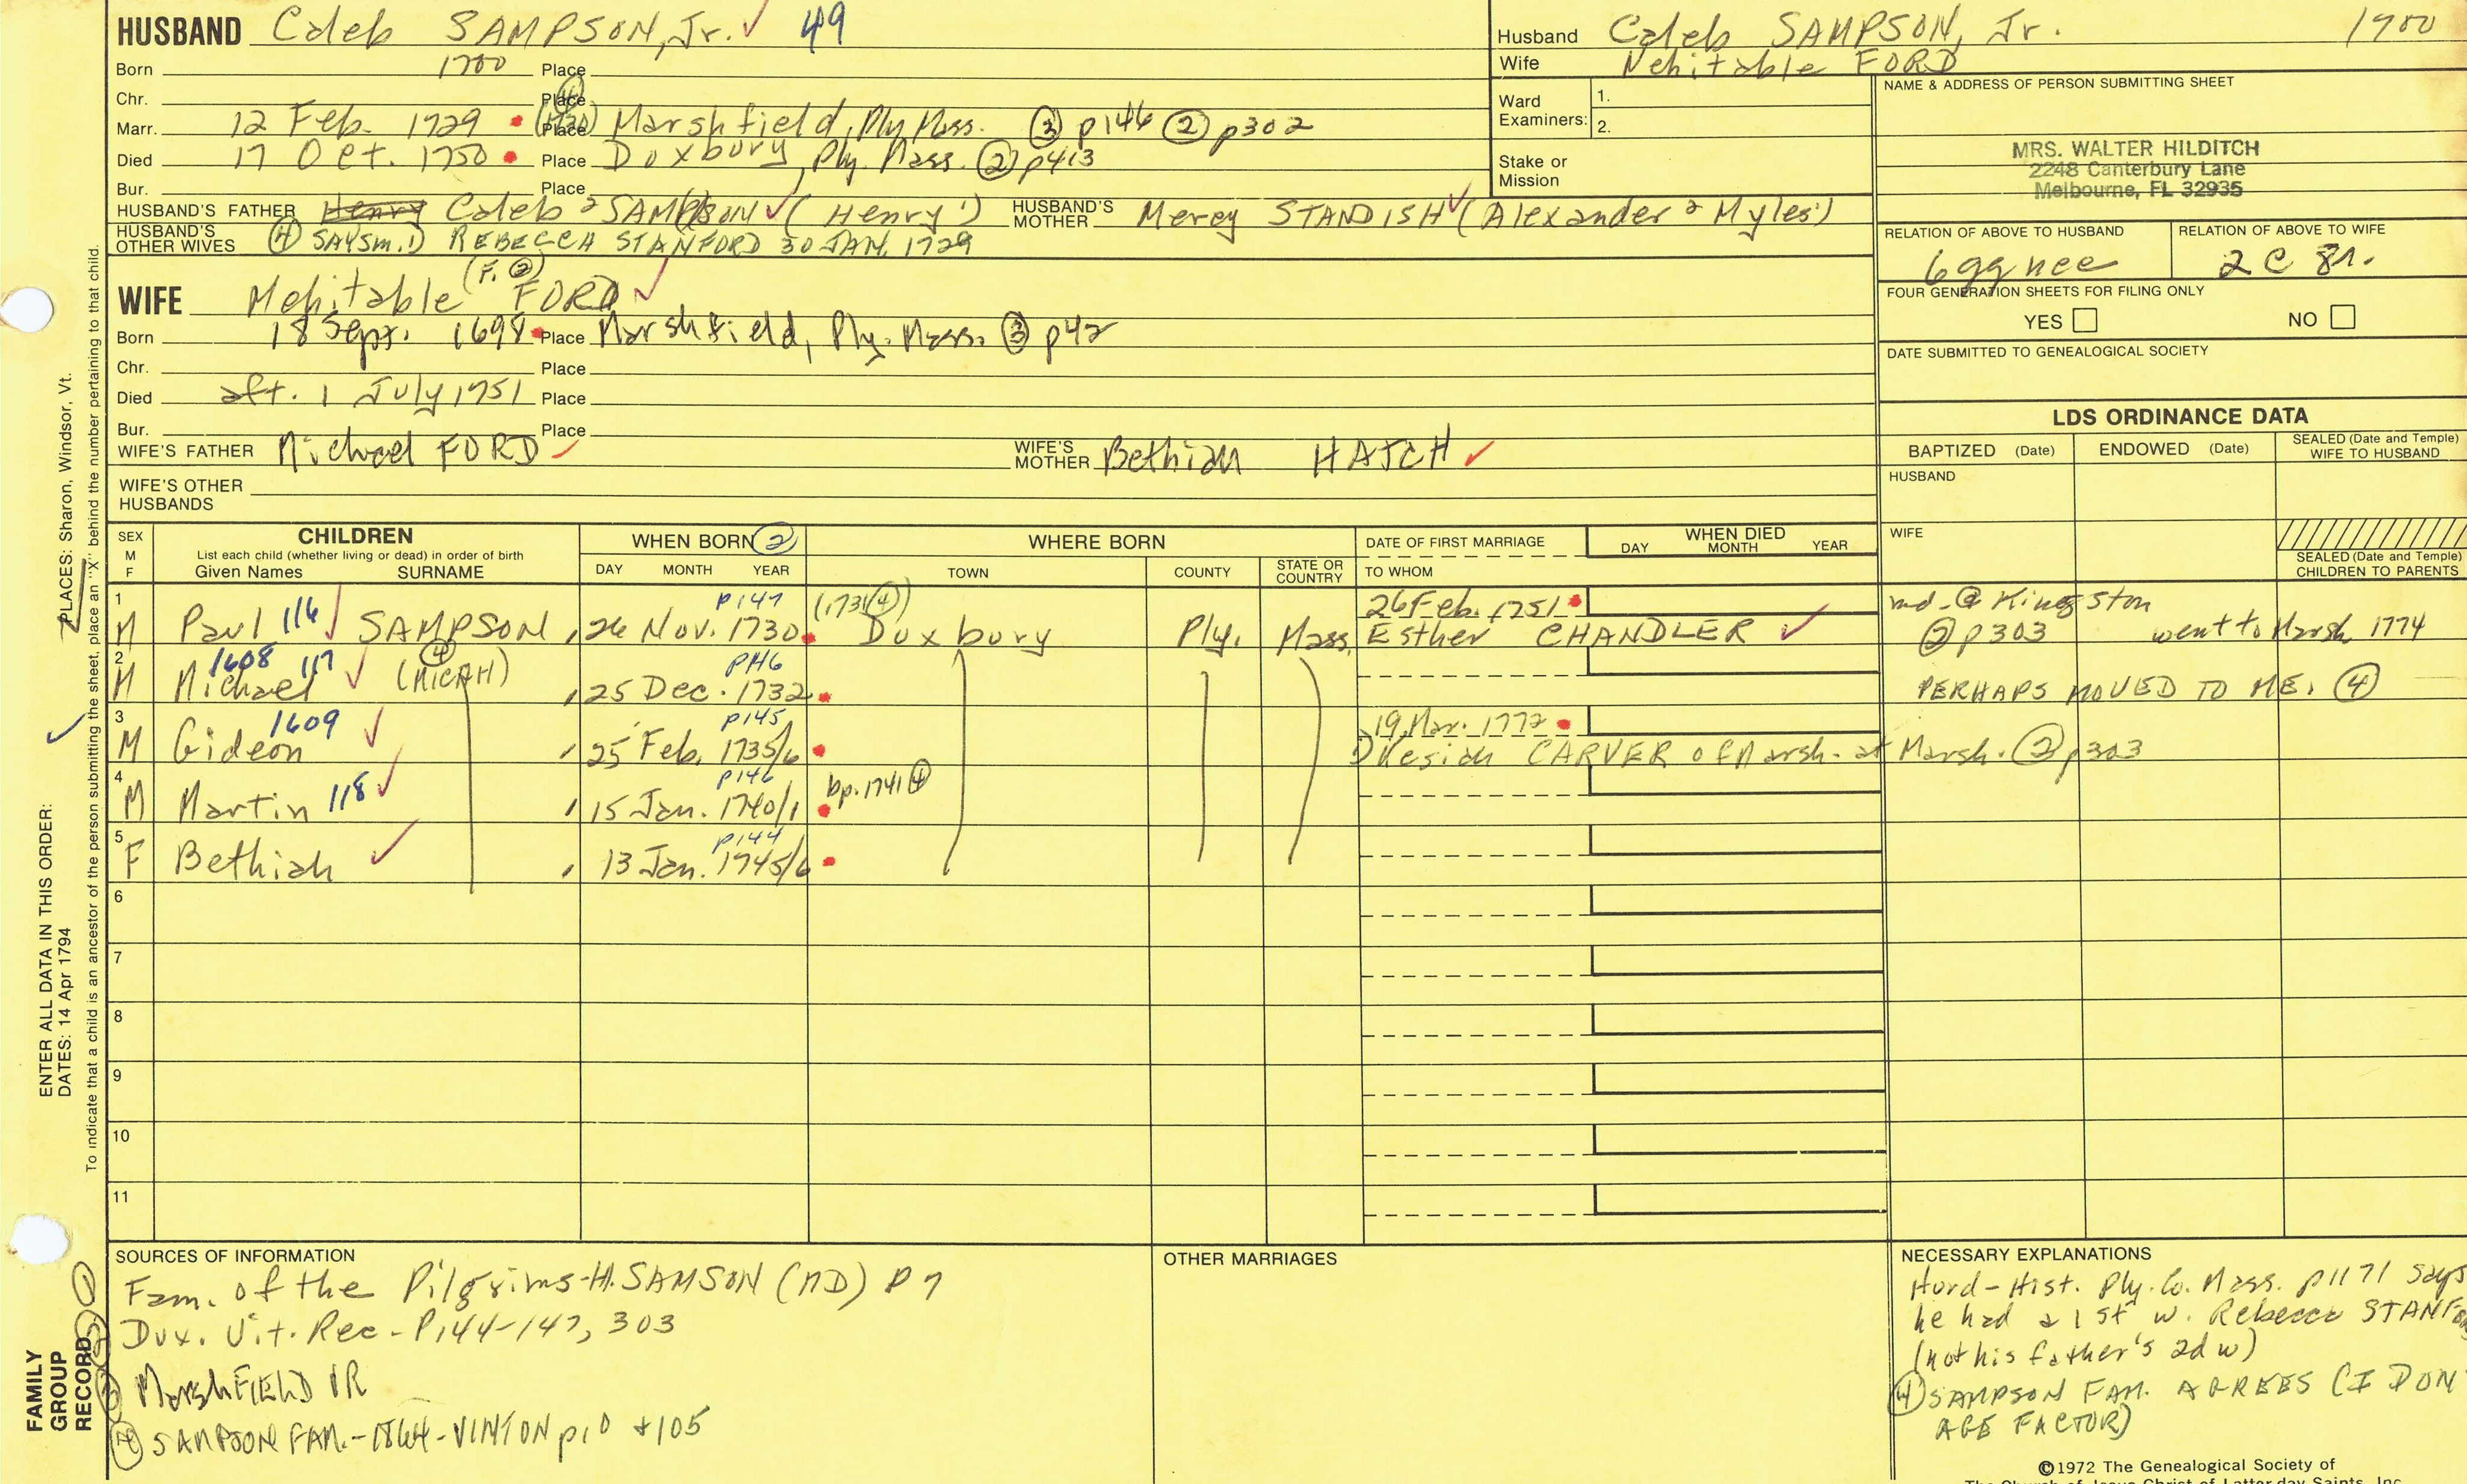 HUSBAND Caleb SAMPSON, Jr. 49
Born 1700 Place
Chr. Place
Marr. 12 Feb. 1729 (1730) ④ Place Marshfield, Ply. Mass. ③ p146 ② p302
Died 17 Oct. 1750 Place Duxbury, Ply. Mass. ② p413
Bur. Place
HUSBAND'S FATHER Henry Caleb 2 SAMPSON (Henry 1) HUSBAND'S MOTHER Mercy STANDISH (Alexander 2 Myles 1)
HUSBAND'S OTHER WIVES ④ SAYS m. 1) REBECCA STANFORD 30 JAN. 1729
Husband Caleb SAMPSON, Jr. 1700
Wife Mehitable FORD
Ward Examiners: 1.
2.
Stake or Mission
NAME & ADDRESS OF PERSON SUBMITTING SHEET
MRS. WALTER HILDITCH
2248 Canterbury Lane
Melbourne, FL 32935
RELATION OF ABOVE TO HUSBAND RELATION OF ABOVE TO WIFE
6ggnee 2 C 8r.
FOUR GENERATION SHEETS FOR FILING ONLY
YES NO
DATE SUBMITTED TO GENEALOGICAL SOCIETY
(F. ②)
WIFE Mehitable FORD
Born 18 Sept. 1698 Place Marshfield, Ply. Mass. ③ p42
Chr. Place
Died aft. 1 July 1751 Place
Bur. Place
WIFE'S FATHER Michael FORD WIFE'S MOTHER Bethiah HATCH
WIFE'S OTHER HUSBANDS
LDS ORDINANCE DATA
BAPTIZED (Date) ENDOWED (Date) SEALED (Date and Temple) WIFE TO HUSBAND
HUSBAND
WIFE
SEALED (Date and Temple) CHILDREN TO PARENTS
SEX M F CHILDREN WHEN BORN ② WHERE BORN DATE OF FIRST MARRIAGE WHEN DIED
List each child (whether living or dead) in order of birth
Given Names SURNAME DAY MONTH YEAR TOWN COUNTY STATE OR COUNTRY TO WHOM DAY MONTH YEAR
1 p147 (1731 ④) 26 Feb. 1751 md. @ Kingston
M Paul 116 SAMPSON 26 Nov. 1730 Duxbury Ply. Mass. Esther CHANDLER ② p303 went to Marsh. 1774
2 1608 117 ④ p146
M Michael (MICAH) 25 Dec. 1732 PERHAPS MOVED TO ME. ④
3 1609 p145 19 Mar. 1772
M Gideon 25 Feb. 1735/6 Dkesiah CARVER of Marsh. at Marsh. ② p303
4 p146 bp. 1741 ④
M Martin 118 15 Jan. 1740/1
5 p144
F Bethiah 13 Jan. 1745/6
6
7
8
9
10
11
SOURCES OF INFORMATION
① Fam. of the Pilgrims-H. SAMSON (MD) P 7
② Dux. Vit. Rec - P144-147, 303
③ MarshFIELD VR
④ SAMPSON FAM.-1864-VINTON p10 +105
OTHER MARRIAGES
NECESSARY EXPLANATIONS
Hurd-Hist. Ply. Co. Mass. p1171 says
he had a 1st w. Rebecca
(not his father's 2d w)
④ SAMPSON FAM. AGREES (I DON'
AGE FACTOR)
©1972 The Genealogical Society of
The Church of Jesus Christ of Latter-day Saints, Inc.
PLACES: Sharon, Windsor, Vt.
ENTER ALL DATA IN THIS ORDER:
DATES: 14 Apr 1794
To indicate that a child is an ancestor of the person submitting the sheet, place an "X" behind the number pertaining to that child.
FAMILY
GROUP
RECORD